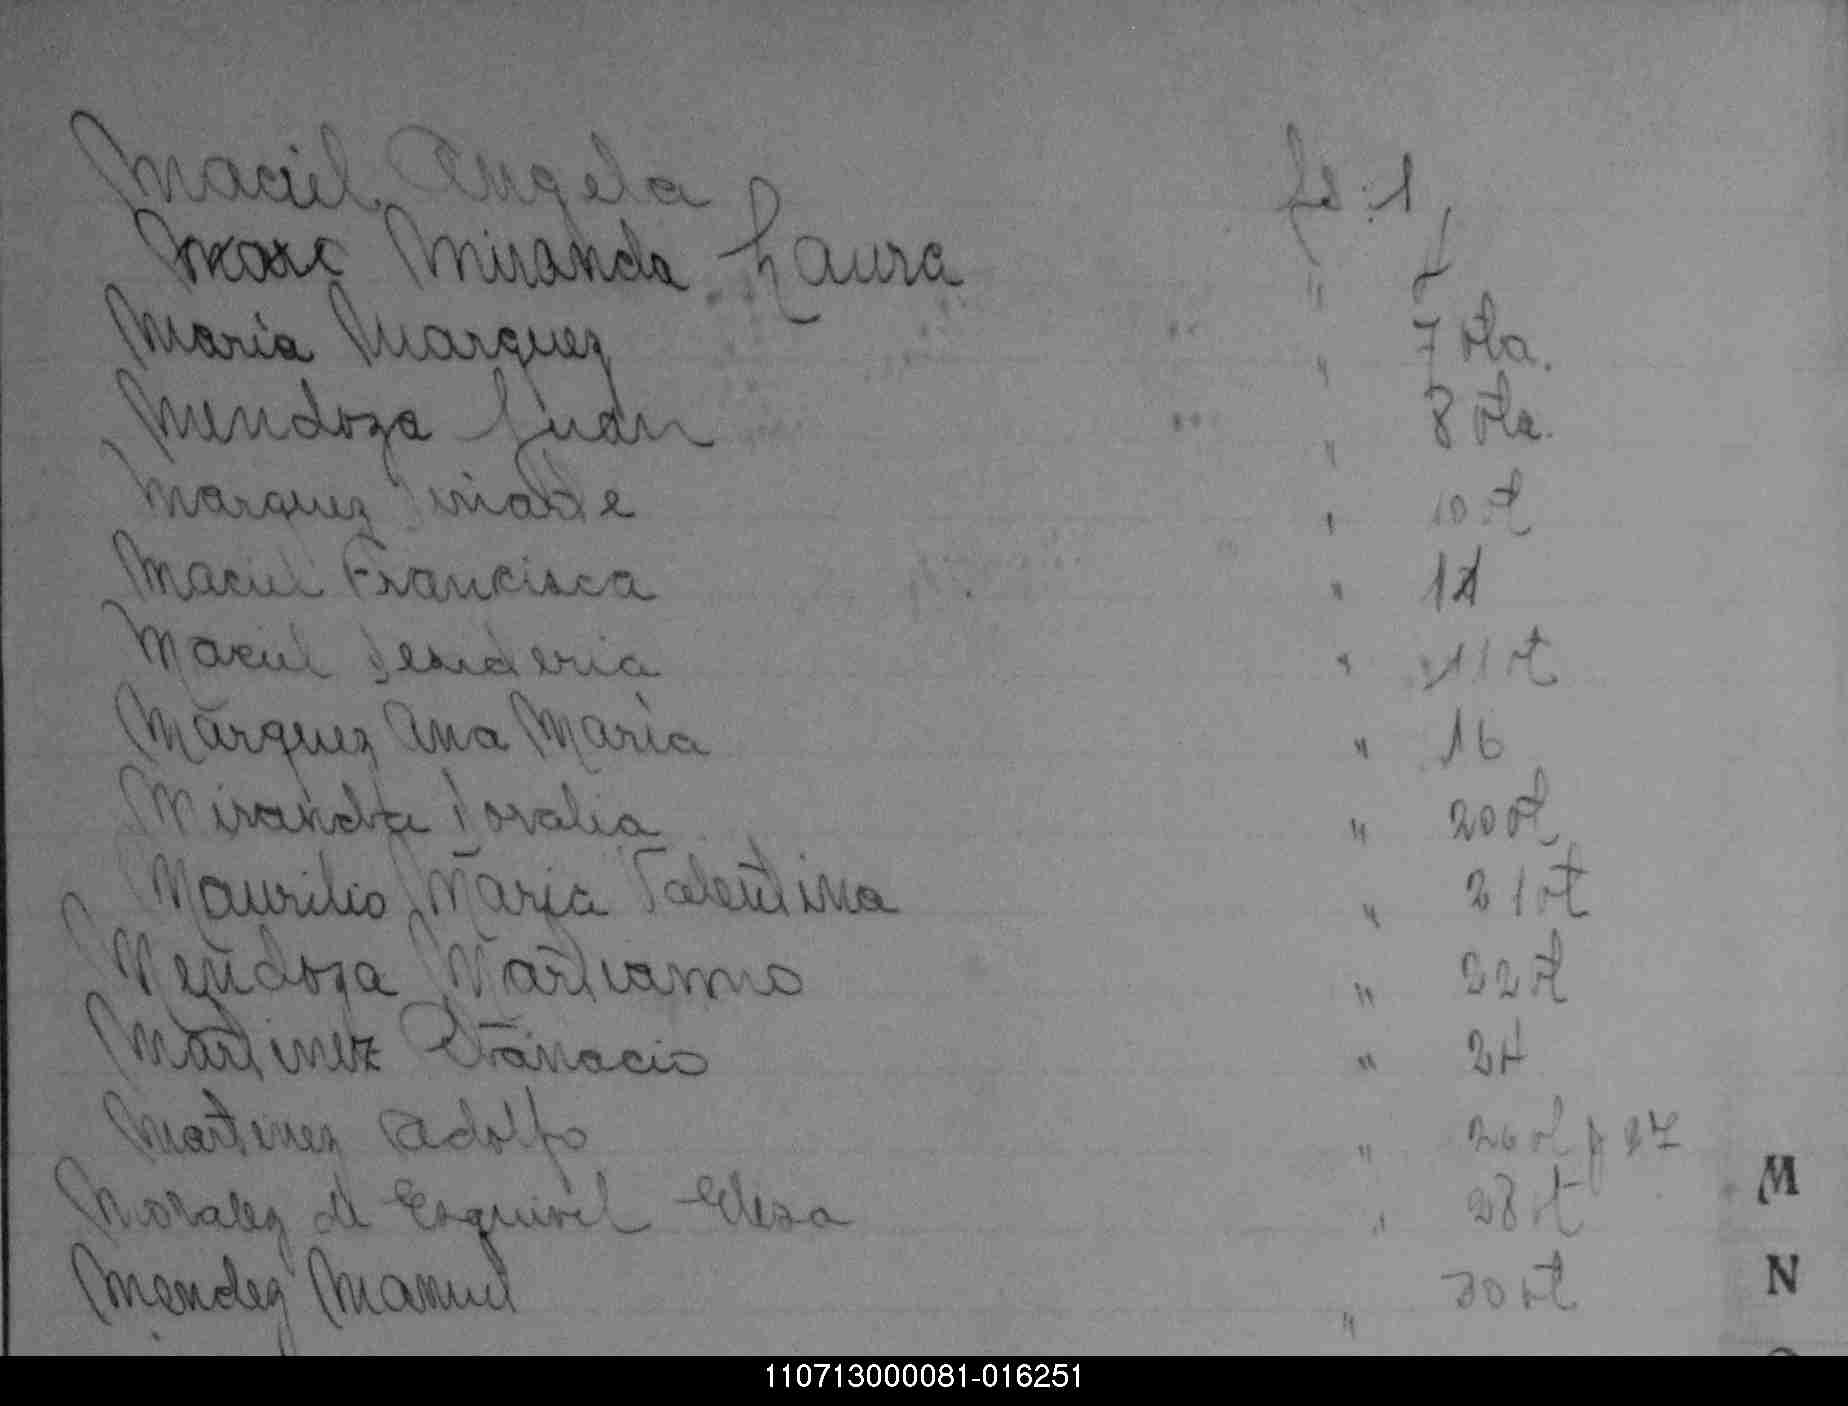 Maciel Angela fs: 1
Miranda Laura "
Maria Marquez " 7 vta.
Mendoza Juan " 8 vta.
Marquez " 10 vt
Maciel Francisca "
Maciel Desideria " 11 vt
Márquez Ana María " 16
Miranda " 20 vt
Maurilio Maria Valentina " 21 vt
Mendoza " 22 vt
Martinez " 24
Martinez Adolfo " 26 vt y 27
Moralez de Esquivel Elisa " 28 vt
Mendez Manuel " 30 vt
M
N
110713000081-016251